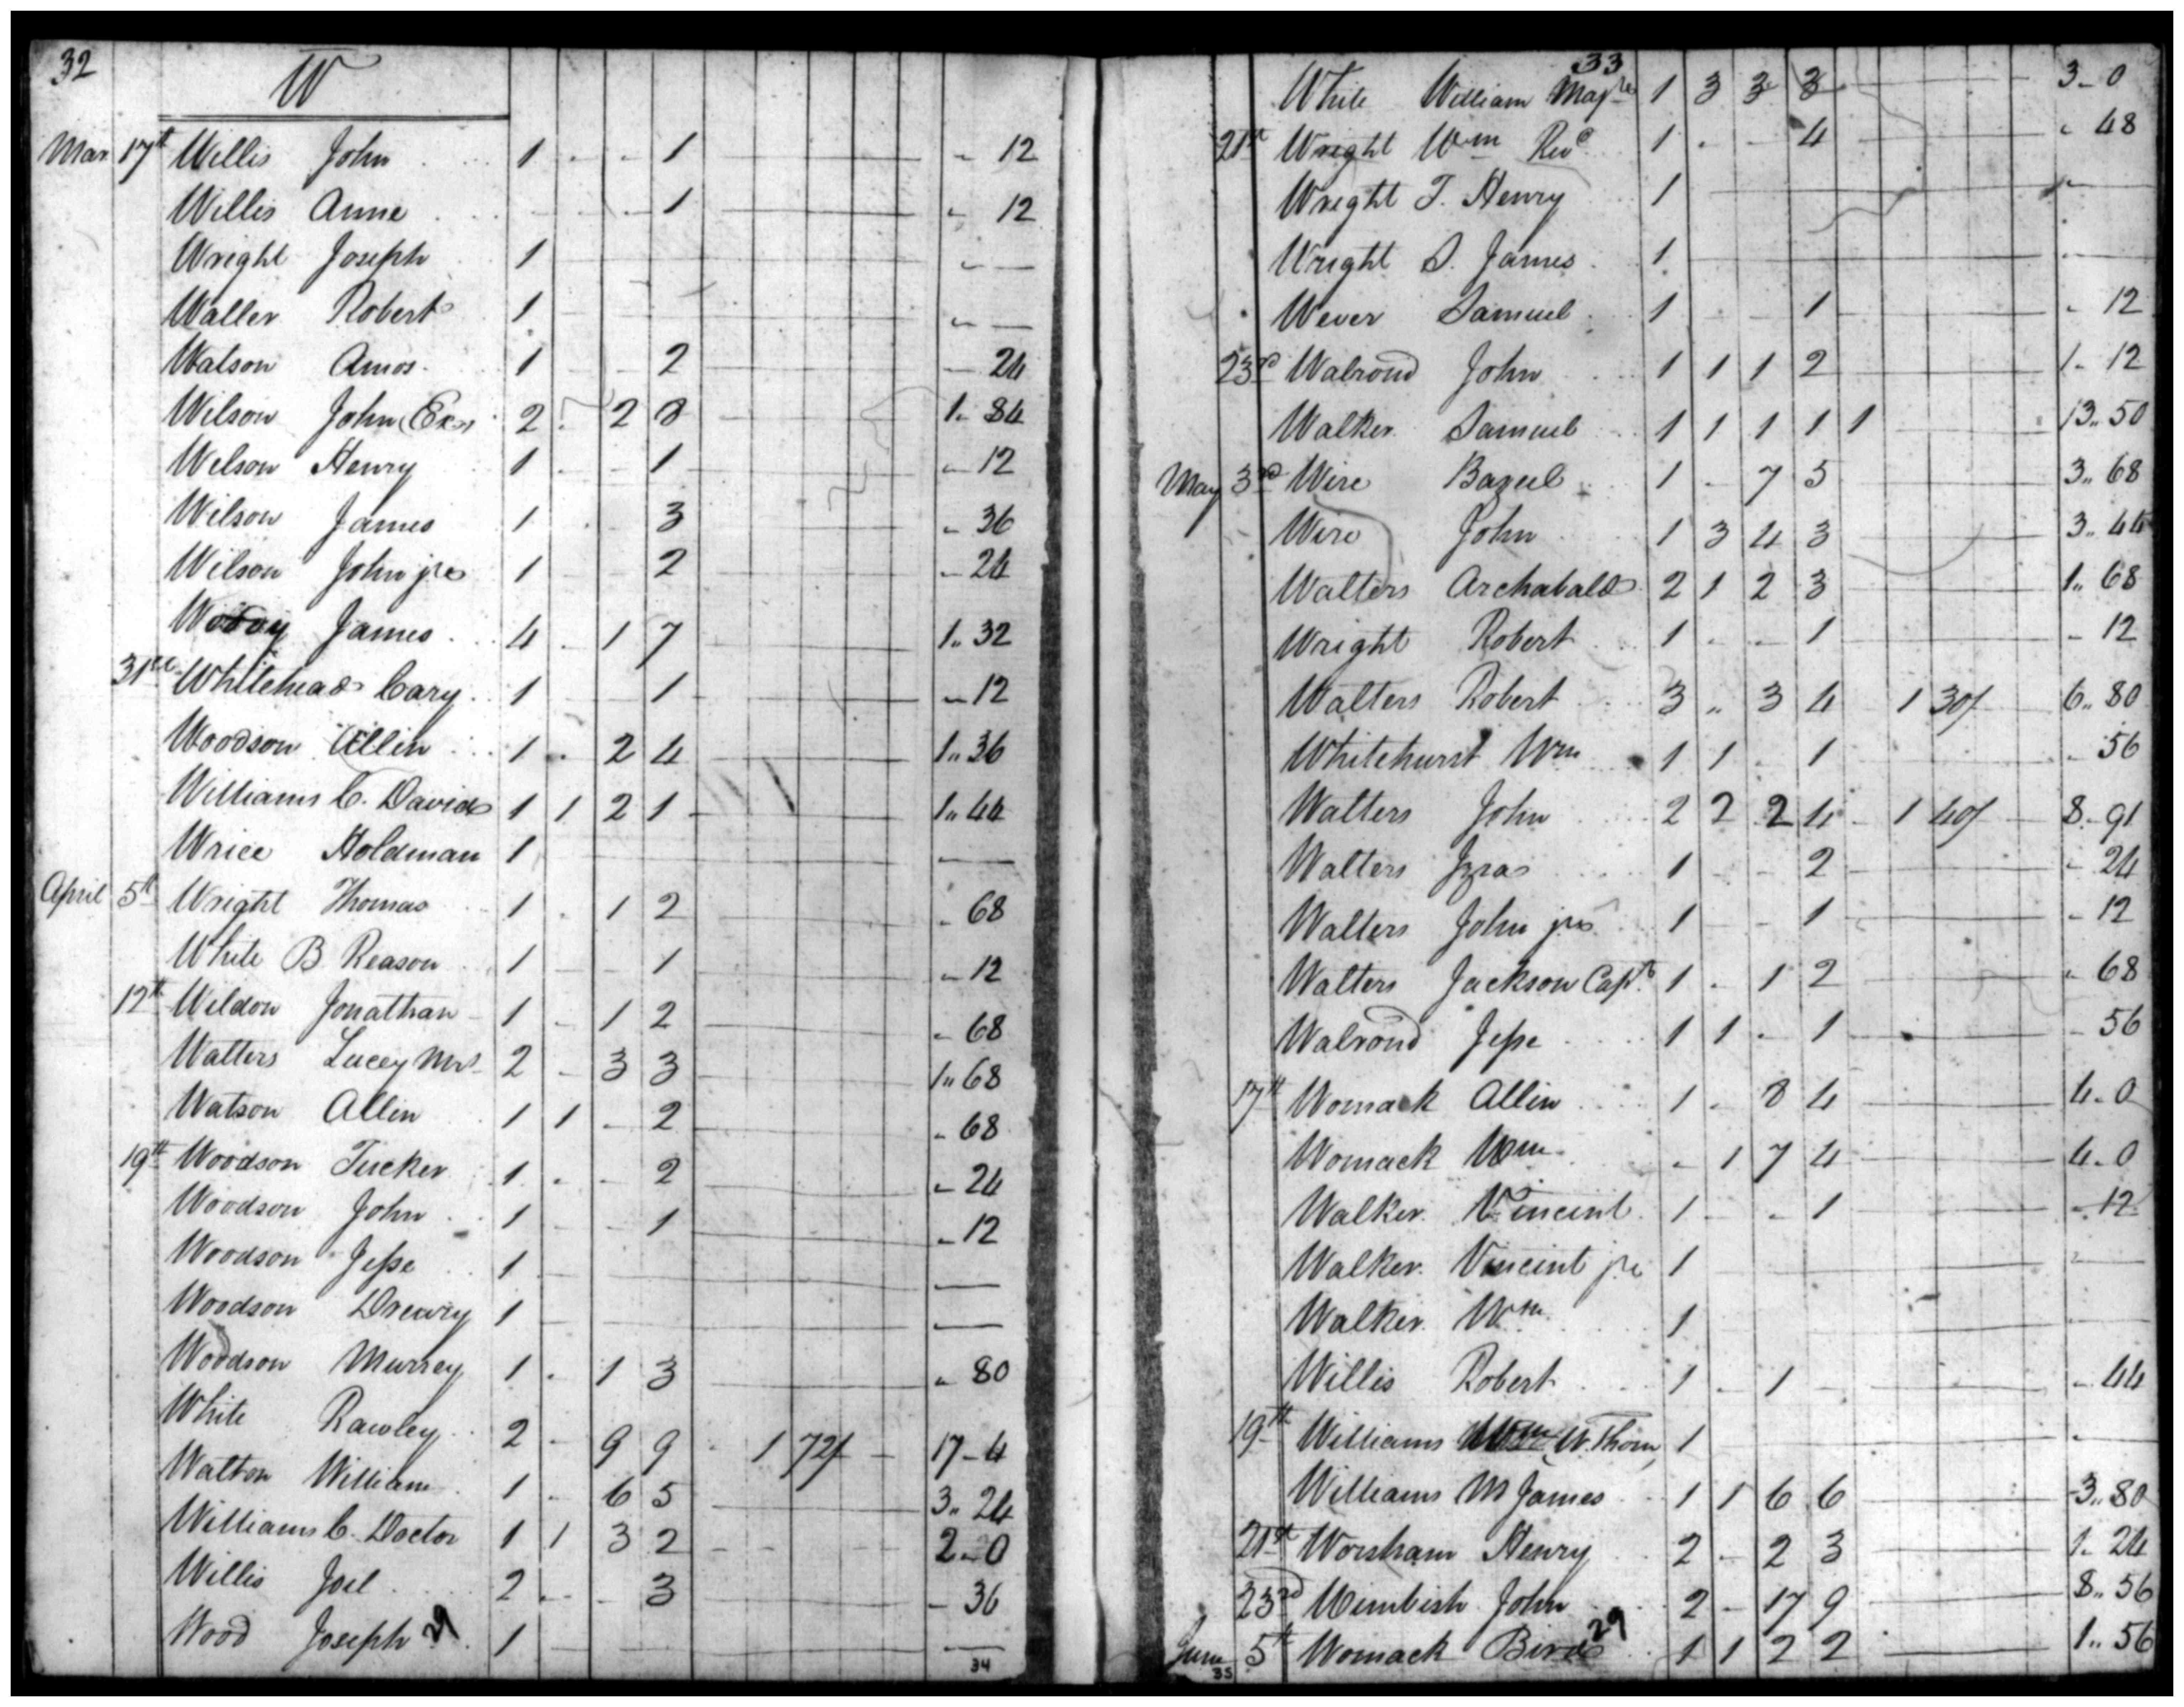 32
W
Mar. 17th Willis John 1 - - 1 - 12
Willis Anne - - - 1 - 12
Wright Joseph 1 - —
Waller Robert 1 - —
Watson Amos 1 2 - 24
Wilson John (Exr 2 - 2 8 1- 84
Wilson Henry 1 - - 1 - 12
Wilson James 1 - 3 - 36
Wilson John jr 1 - - 2 - 24
Woody James 4 - 1 7 1.. 32
31st Whitehead Cary 1 - - 1 - 12
Woodson Allin 1 - 2 4 1.. 36
Williams C. David 1 1 2 1 1.. 44
Wrice Holdman 1 —
April 5th Wright Thomas 1 - 1 2 - 68
White B Reason 1 - - 1 - 12
12th Weldon Jonathan 1 - 1 2 - 68
Walters Lucey Mrs 2 - 3 3 1.. 68
Watson Allin 1 1 - 2 - 68
19th Woodson Tucker 1 - - 2 - 24
Woodson John 1 - - 1 - 12
Woodson Jesse 1 —
Woodson Drewry 1 —
Woodson Murrey 1 - 1 3 - 80
White Rawley 2 - 9 9 - 1 72/ - 17 - 4
Walton William 1 - 6 5 3.. 24
Williams C. Doctor 1 1 3 2 2 - 0
Willis Joel 2 - - 3 - 36
Wood Joseph 29 1 —
34
33
White William Majr 1 3 3 3 3 - 0
21st Wright Wm Revd 1 - - 4 - 48
Wright T. Henry 1 -
Wright S. James 1 -
Wever Samuel 1 - - 1 - 12
23rd Walrond John 1 1 1 2 1- 12
Walker Samuel 1 1 1 1 1 13.. 50
May 3rd Wire Bazeel 1 - 7 5 3.. 68
Wire John 1 3 4 3 3.. 44
Walters Archabald 2 1 2 3 1.. 68
Wright Robert 1 - - 1 - 12
Walters Robert 3 .. 3 4 1 30/ 6.. 80
Whitehurst Wm 1 1 - 1 - 56
Walters John 2 2 2 4 - 1 40/ 8 - 91
Walters 1 - - 2 - 24
Walters John jr 1 - - 1 - 12
Walters Jackson Capt 1 - 1 2 - 68
Walrond Jesse 1 1 - 1 - 56
17th Womack Allin 1 - 8 4 4 - 0
Womack Wm - 1 7 4 4 - 0
Walker Vincint 1 - - 1 - 12
Walker Vincint jr 1 -
Walker Wm 1
Willis Robert 1 - 1 - 44
19th Williams W. Thom 1 -
Williams M James 1 1 6 6 3.. 80
21st Worsham Henry 2 - 2 3 1- 24
23rd Wimbish John 2 - 17 9 8.. 56
June 5th Womack Bird 29 1 1 2 2 1.. 56
35